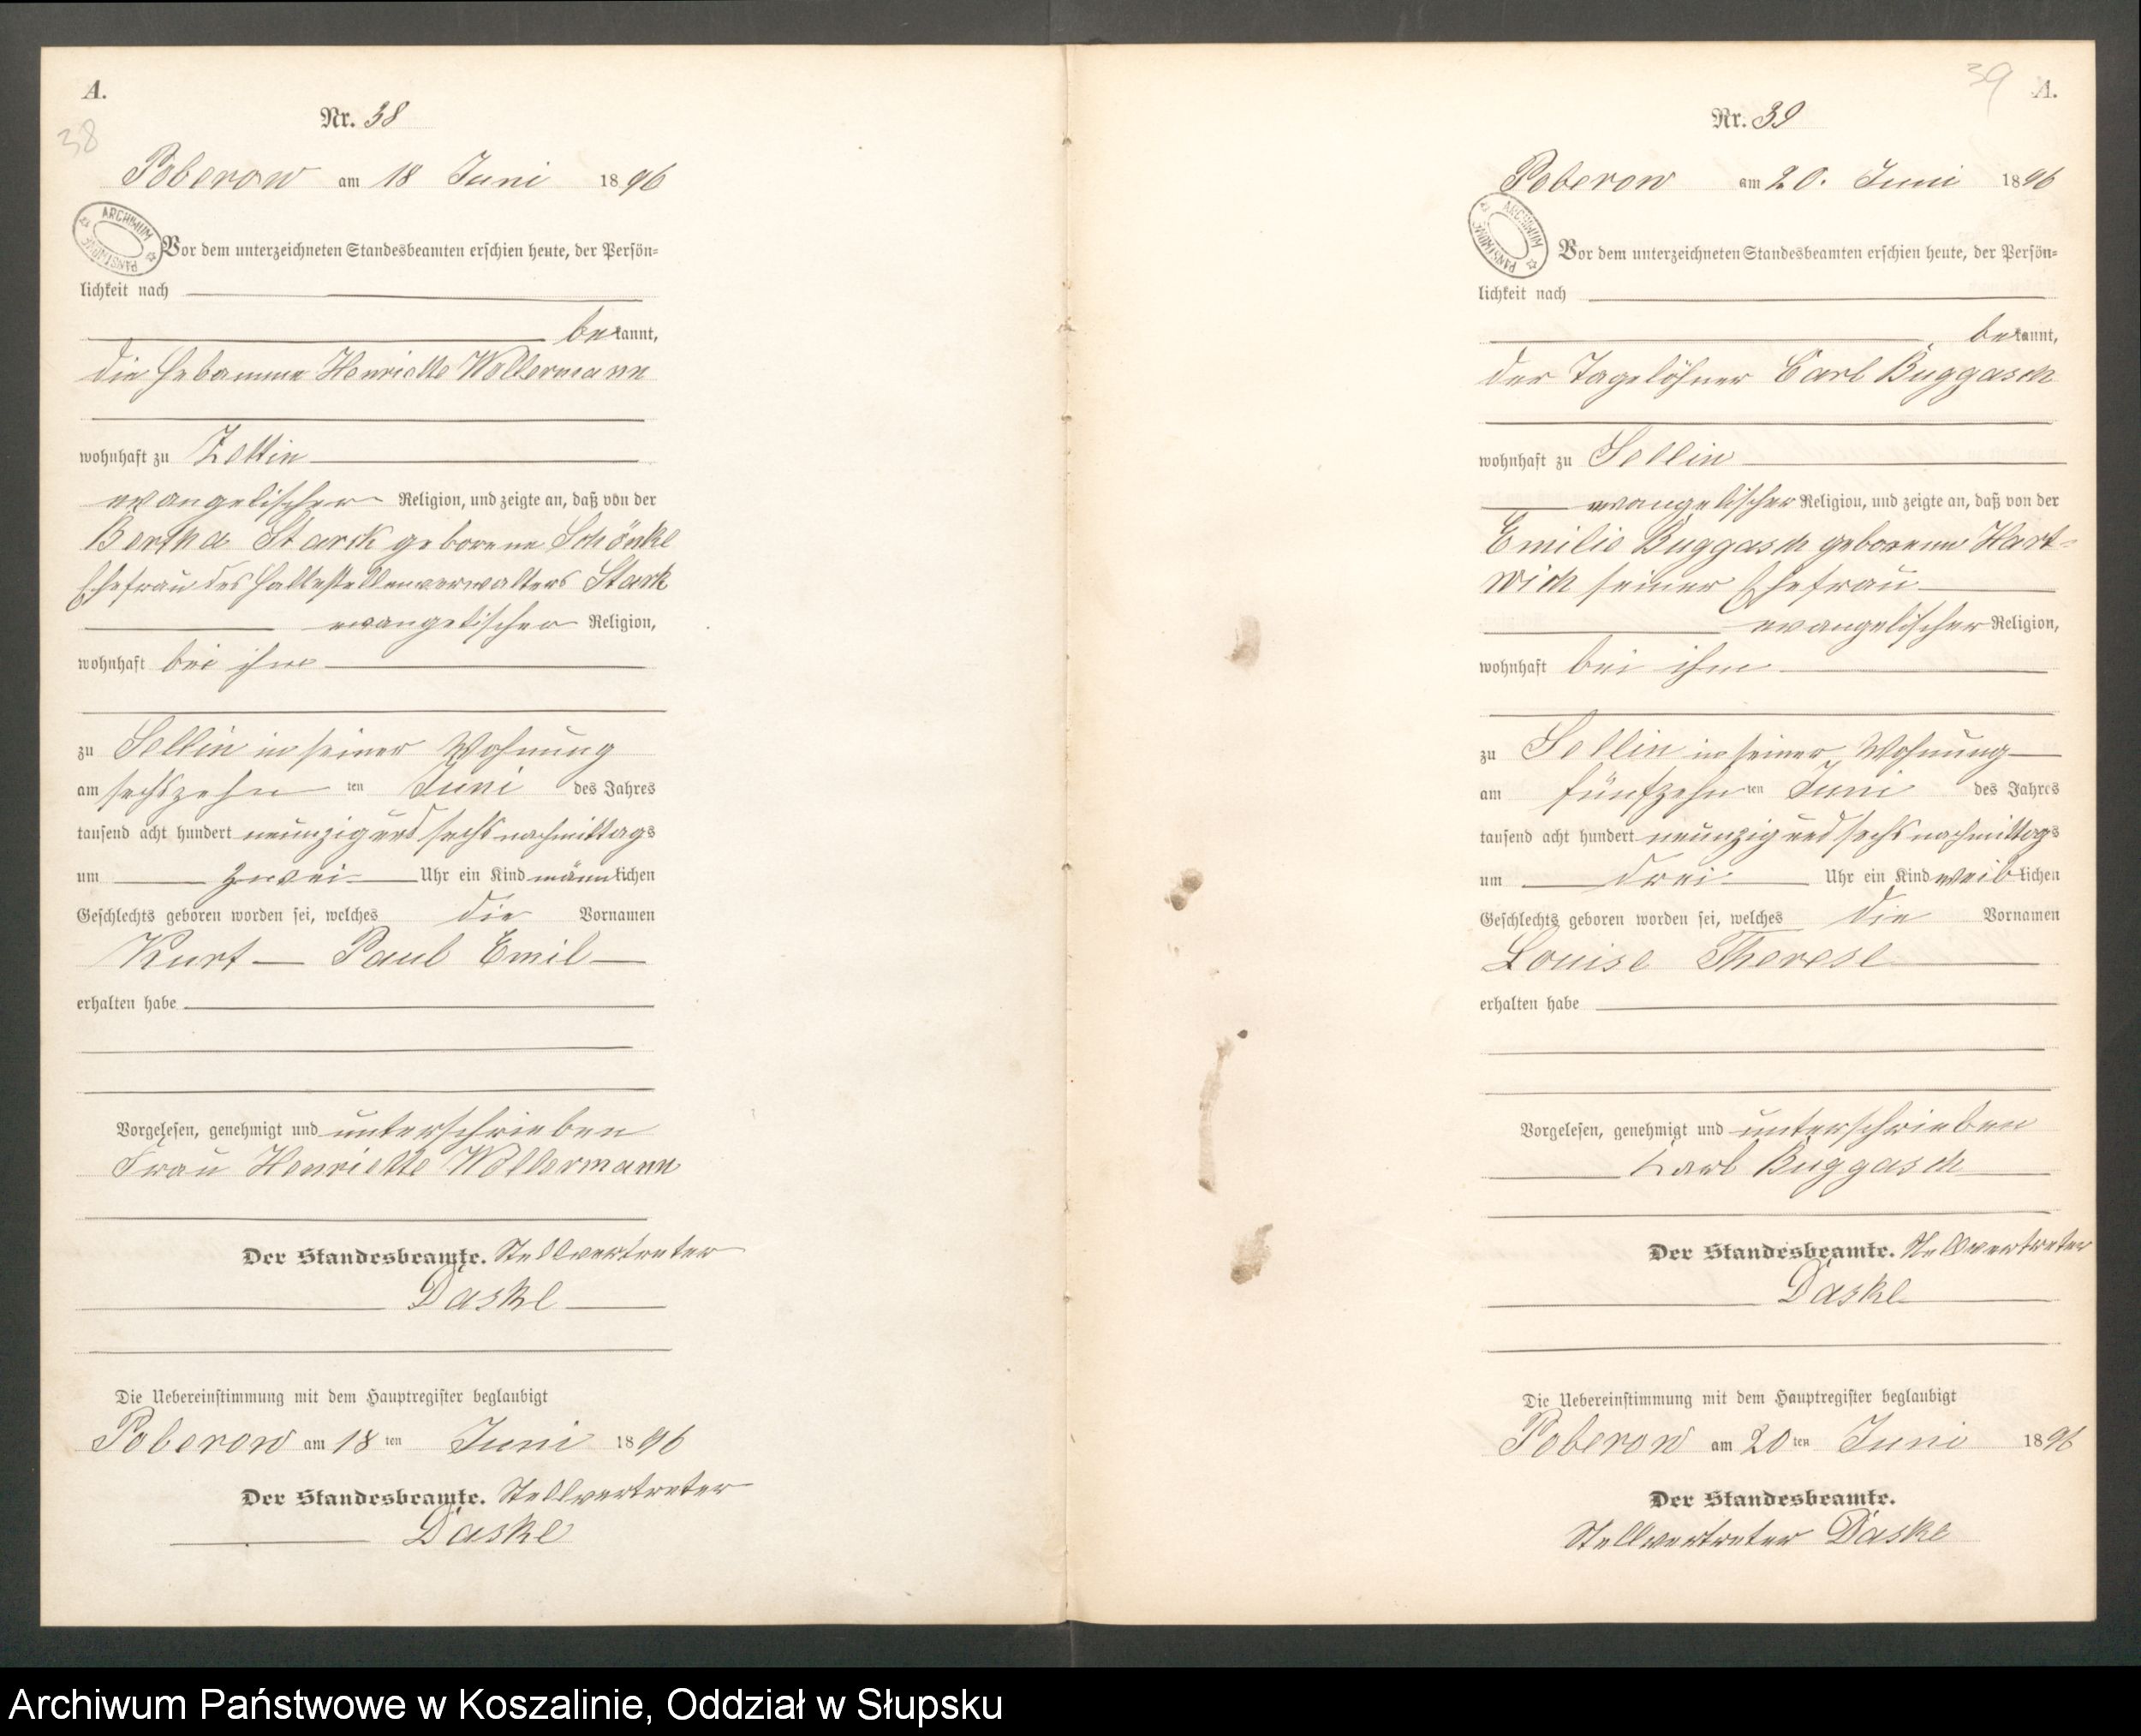 A.
38
Nr. 38
Poberow am 18 Juni 1896
ARCHIWUM PAŃSTWOWE
Vor dem unterzeichneten Standesbeamten erschien heute, der Persön-
lichkeit nach
bekannt,
die Hebamme Henriette Wollermann
wohnhaft zu Zettin
evangelischer Religion, und zeigte an, daß von der
Bertha Stark geborene Schönke
Ehefrau des Haltestellenverwalters Stark
evangelischer Religion,
wohnhaft bei ihm
zu Sellin in seiner Wohnung
am sechszehnten Juni des Jahres
tausend acht hundert neunzig und sechs nachmittags
um zwei Uhr ein Kind männlichen
Geschlechts geboren worden sei, welches die Vornamen
Kurt Paul Emil
erhalten habe
Vorgelesen, genehmigt und unterschrieben
Frau Henriette Wollermann
Der Standesbeamte. Stellvertreter
Daske
Die Uebereinstimmung mit dem Hauptregister beglaubigt
Poberow am 18ten Juni 1896
Der Standesbeamte. Stellvertreter
Daske
39
A.
Nr. 39
Poberow am 20. Juni 1896
ARCHIWUM PAŃSTWOWE
Vor dem unterzeichneten Standesbeamten erschien heute, der Persön-
lichkeit nach
bekannt,
der Tagelöhner Carl Buggasch
wohnhaft zu Sellin
evangelischer Religion, und zeigte an, daß von der
Emilie Buggasch geborenen Hart-
wich seiner Ehefrau
evangelischer Religion,
wohnhaft bei ihm
zu Sellin in seiner Wohnung
am fünfzehnten Juni des Jahres
tausend acht hundert neunzig und sechs nachmittags
um drei Uhr ein Kind weiblichen
Geschlechts geboren worden sei, welches die Vornamen
Louise Therese
erhalten habe
Vorgelesen, genehmigt und unterschrieben
Karl Buggasch
Der Standesbeamte. Stellvertreter
Daske
Die Uebereinstimmung mit dem Hauptregister beglaubigt
Poberow am 20ten Juni 1896
Der Standesbeamte.
Stellvertreter Daske
Archiwum Państwowe w Koszalinie, Oddział w Słupsku